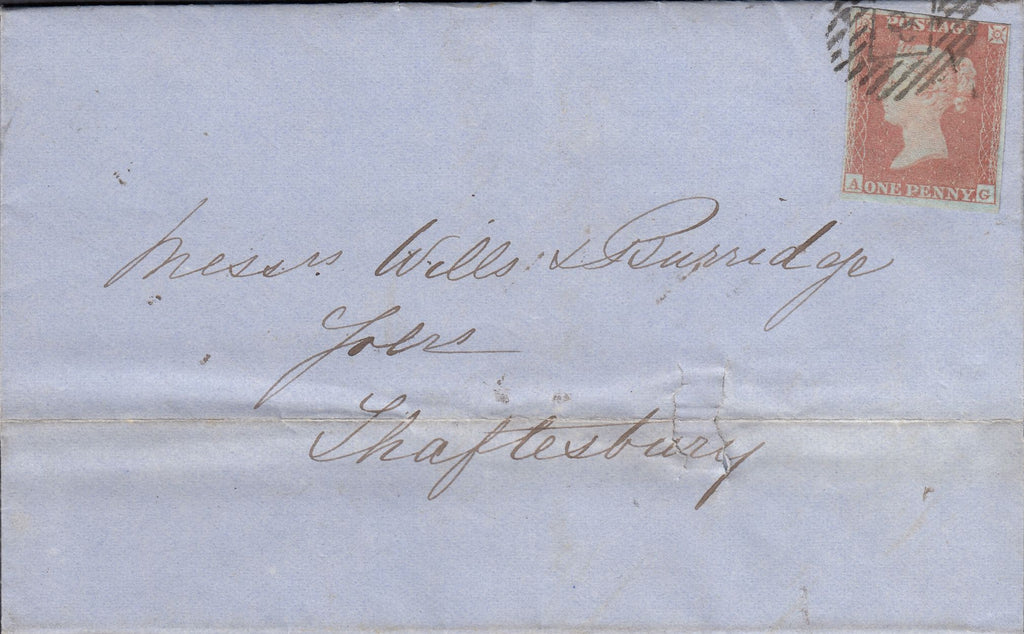 POSTAGE
A ONE PENNY. G
Messrs Wills & Burridge
Solrs
Shaftesbury